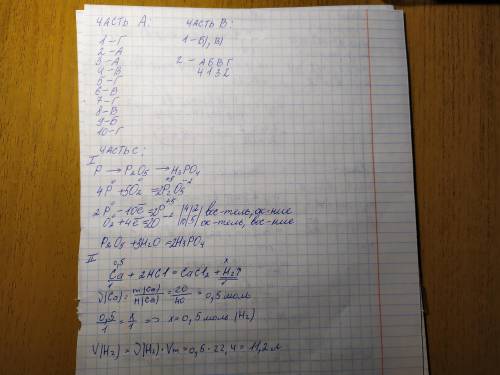 ЧАСТЬ А:
1-Г
2-А
3-А
4-В
5-Г
6-В
7-Г
8-В
9-Б
10-Г
ЧАСТЬ В:
1-Б), В)
2- А Б В Г
4 1 3 2
ЧАСТЬ С:
I
P → P₂O₅ → H₃PO₄
4P⁰ + 5O₂⁰ = 2P₂⁺⁵O₅⁻²
2P⁰ - 10ē = 2P⁺⁵ |4|2| вос-тель, ок-ние
O₂⁰ + 4ē = 2O⁻² |10|5| ок-тель, вос-ние
P₂O₅ + 3H₂O = 2H₃PO₄
II
0,5 x
Ca + 2HCl = CaCl₂ + H₂↑
1 1
ν(Ca) = m(Ca)/M(Ca) = 20/40 = 0,5 моль
0,5/1 = x/1 => x = 0,5 моль (H₂)
V(H₂) = ν(H₂) · Vm = 0,5 · 22,4 = 11,2 л